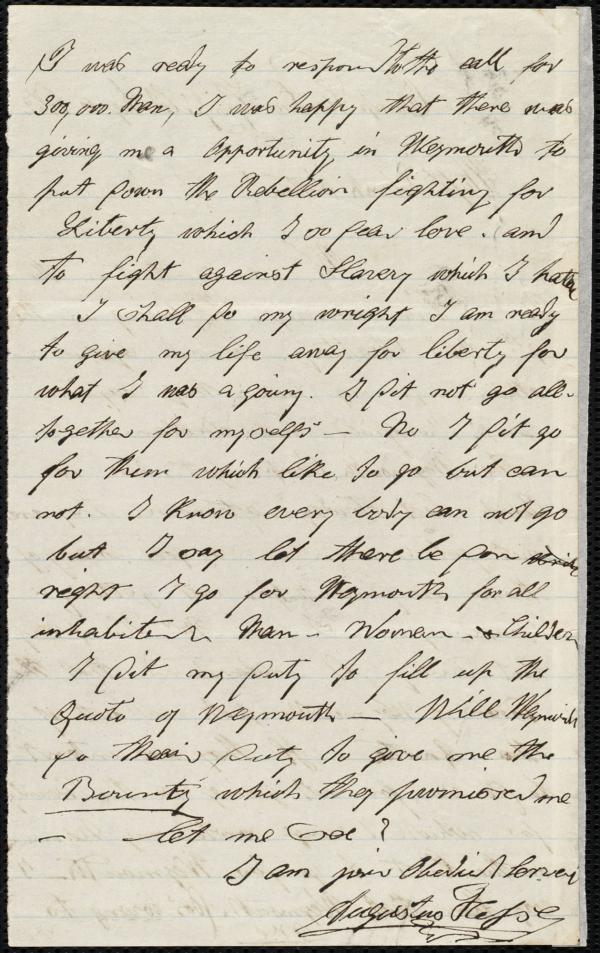 I was ready to respond to the call for
300,000. Man, I was happy that there was
giving me a Opportunity in Weymouth to
put down the Rebellion fighting for
Liberty which I do dear love. and
to fight against Slavery which I hate
I shall do my wright I am ready
to give my life away for liberty for
what I was agoing. I dit not go all-
together for myselfs — No I dit go
for them which like to go but can
not. I know every body can not go
but I say let there be don
right I go for Weymouth for all
inhabiten Man - Woman - & Children
I dit my duty to fill up the
Quoto of Weymouth — Will Weymouth
do their duty to give me the
Bounty which they promised me
— let me See?
I am your Obedient Servant
Augustus Hesse